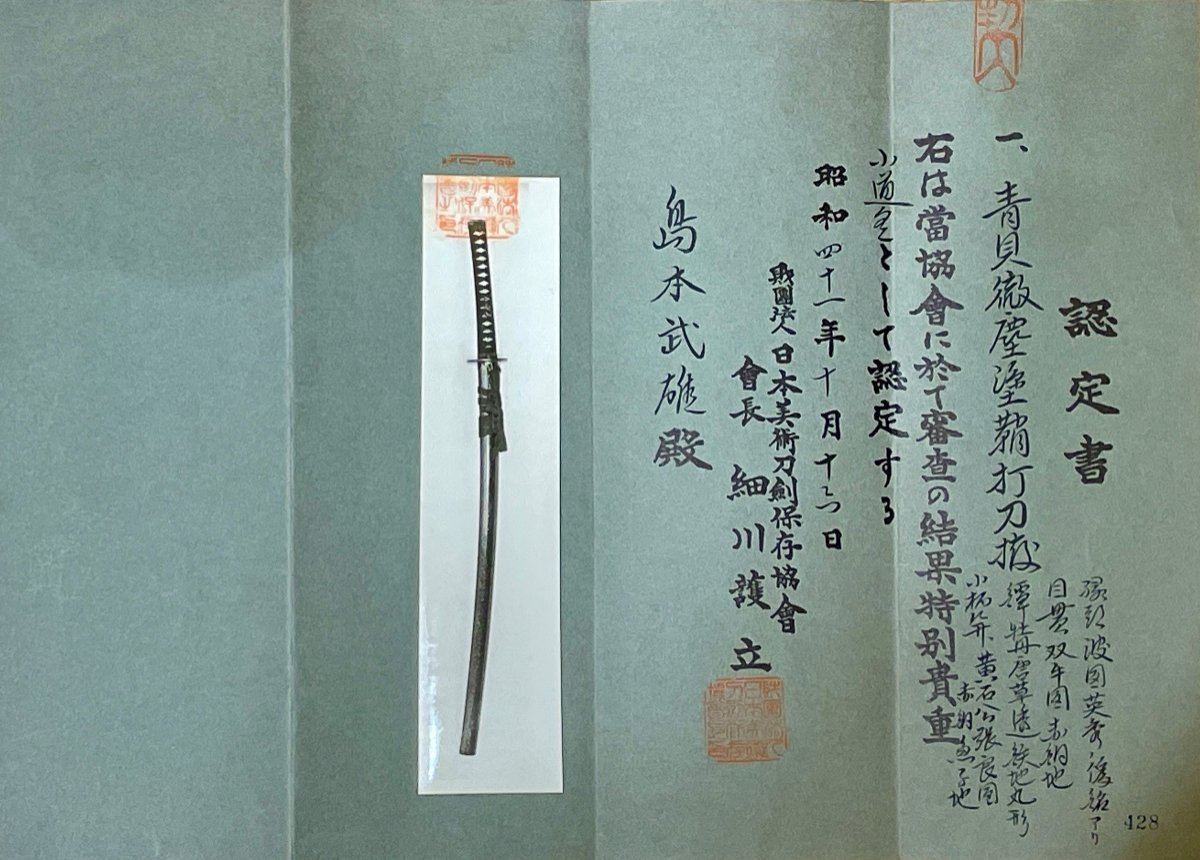 認定書
一、青貝微塵塗鞘打刀拵
縁頭波図英秀ノ後銘アリ
目貫双牛図赤銅地
鐔牡丹唐草透鉄地丸形
小柄笄黄石公張良図
赤銅魚子地
右は當協會に於て審査の結果特別貴重
小道具として認定する
昭和四十一年十月十六日
財團法人日本美術刀劍保存協會
會長 細川護立
島本武雄殿
428